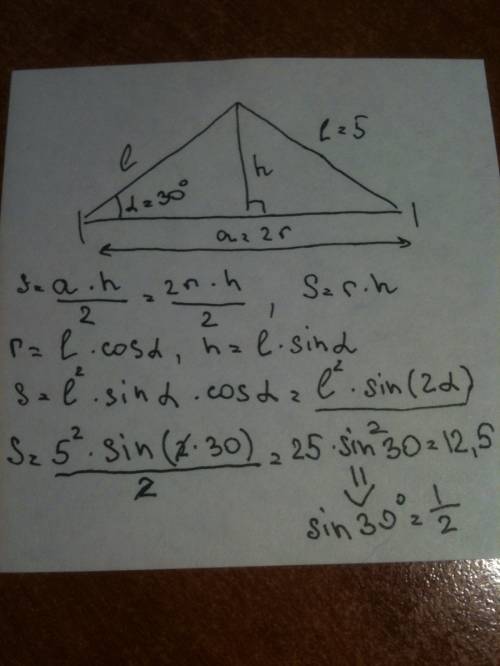 l
l=5
h
α=30°
a=2r
S=a·h/2=2r·h/2, S=r·h
r=l·cosα, h=l·sinα
S=l²·sinα·cosα=l²·sin(2α)
S=5²·sin(2·30)/2=25·sin²30=12,5
sin30°=1/2